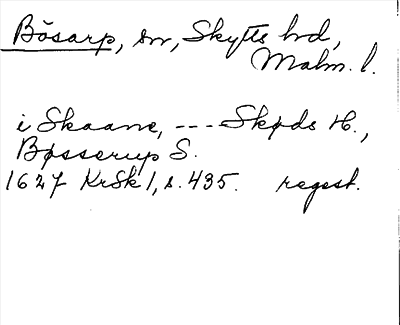 Bösarp, sn, Skytts hd,
Malm. l.
i Skaane, --- Skøds H.,
Bøsserup S.
1627 KrSk 1, s. 435. regest.